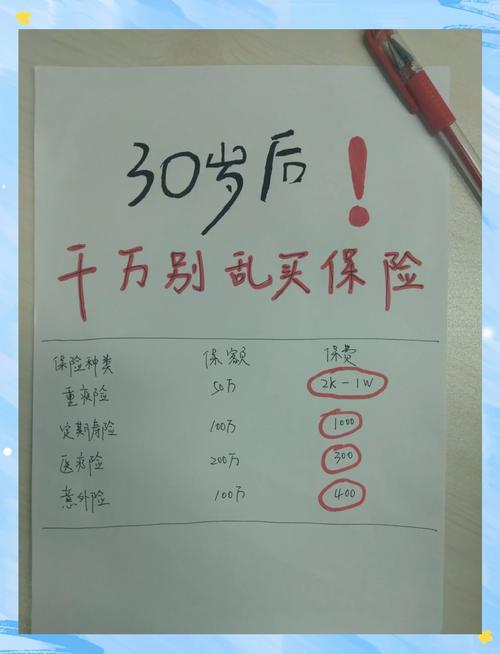 30岁后!
千万别乱买保险
保险种类 保额 保费
重疾险 50万 2K-1W
定期寿险 100万 1000
医疗险 200万 300
意外险 100万 400